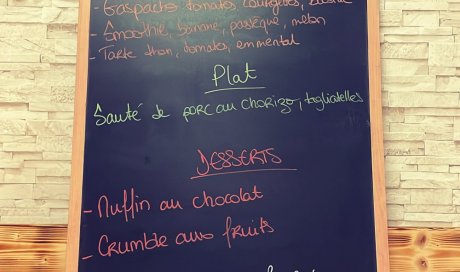 - Gaspacho tomates courgettes,
- Smoothie, banane, pastèque, melon
- Tarte thon, tomate, emmental
Plat
Sauté de porc au chorizo, tagliatelles
DESSERTS
- Muffin au chocolat
- Crumble aux fruits